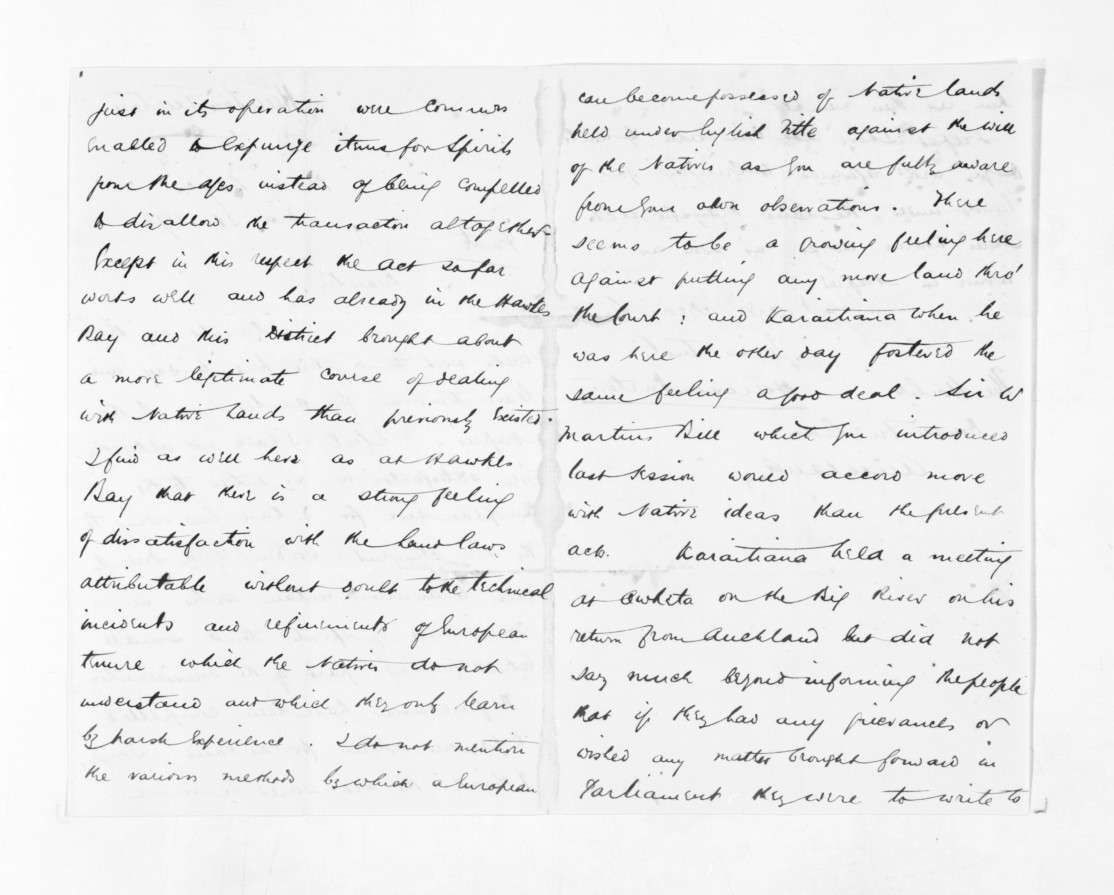 just in its operation were Commrs
enabled to expunge items for Spirits
from the a/cs instead of being compelled
to disallow the transaction altogether.
Except in this respect the act so far
works well and has already in the Hawkes
Bay and this District brought about
a more legitimate course of dealing
with Native lands than previously existed.
I find as well here as at Hawkes
Bay that there is a strong feeling
of dissatisfaction with the land laws
attributable without doubt to the technical
incidents and refinements of European
tenure which the Natives do not
understand and which they only learn
by harsh experience. I do not mention
the various methods by which a European
can become possessed of Native lands
held under English title against the will
of the Natives as you are fully aware
from your own observations. There
seems to be a growing feeling here
against putting any more land thro'
the Court; and Karaitiana when he
was here the other day fostered the
same feeling a good deal. Sir W
Martins Bill which you introduced
last session would accord more
with Native ideas than the present
act. Karaitiana held a meeting
at Owhata on the Big River on his
return from Auckland but did not
say much beyond informing the people
that if they had any grievances or
wished any matter brought forward in
Parliament they were to write to